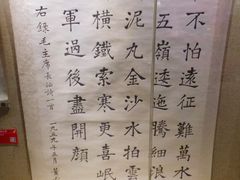 不怕遠征難萬水
五嶺逶迤騰細浪
泥丸金沙水拍雲
橫鐵索寒更喜岷
軍過後盡開顏
右錄毛主席長征詩一首 一九五九年五月